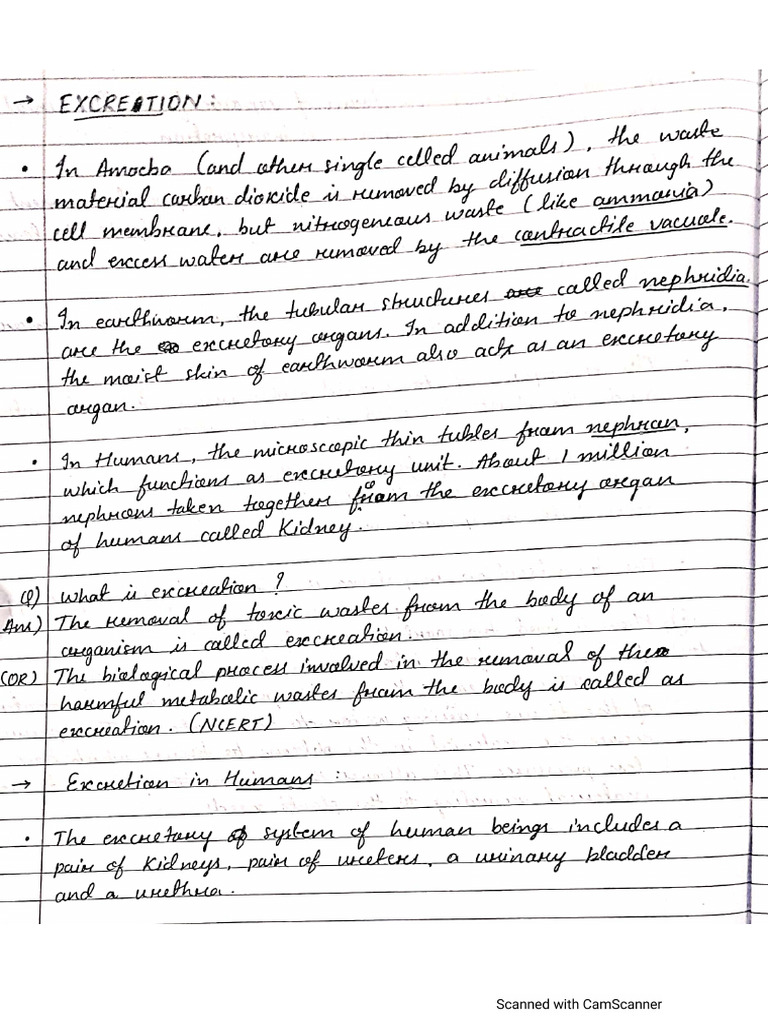 → EXCREATION:
• In Amoeba (and other single celled animals), the waste
material carbon dioxide is removed by diffusion through the
cell membrane, but nitrogeneous waste (like ammania)
and excess water are removed by the contractile vacuole.
• In earthworm, the tubular structures called nephridia.
are the excretory organs. In addition to nephridia,
the moist skin of earthworm also acts as an excretory
organ.
• In Humans, the microscopic thin tubles from nephron,
which functions as excretory unit. About 1 million
nephrons taken together from the excretory organ
of humans called Kidney.
Q) What is excreation ?
Ans) The removal of toxic wastes from the body of an
organism is called excreation.
(OR) The biological process involved in the removal of these
harmful metabolic wastes from the body is called as
excreation. (NCERT)
→ Excretion in Humans :
• The excretory system of human beings includes a
pair of Kidneys, pair of ureters, a urinary bladder
and a urethra.
Scanned with CamScanner